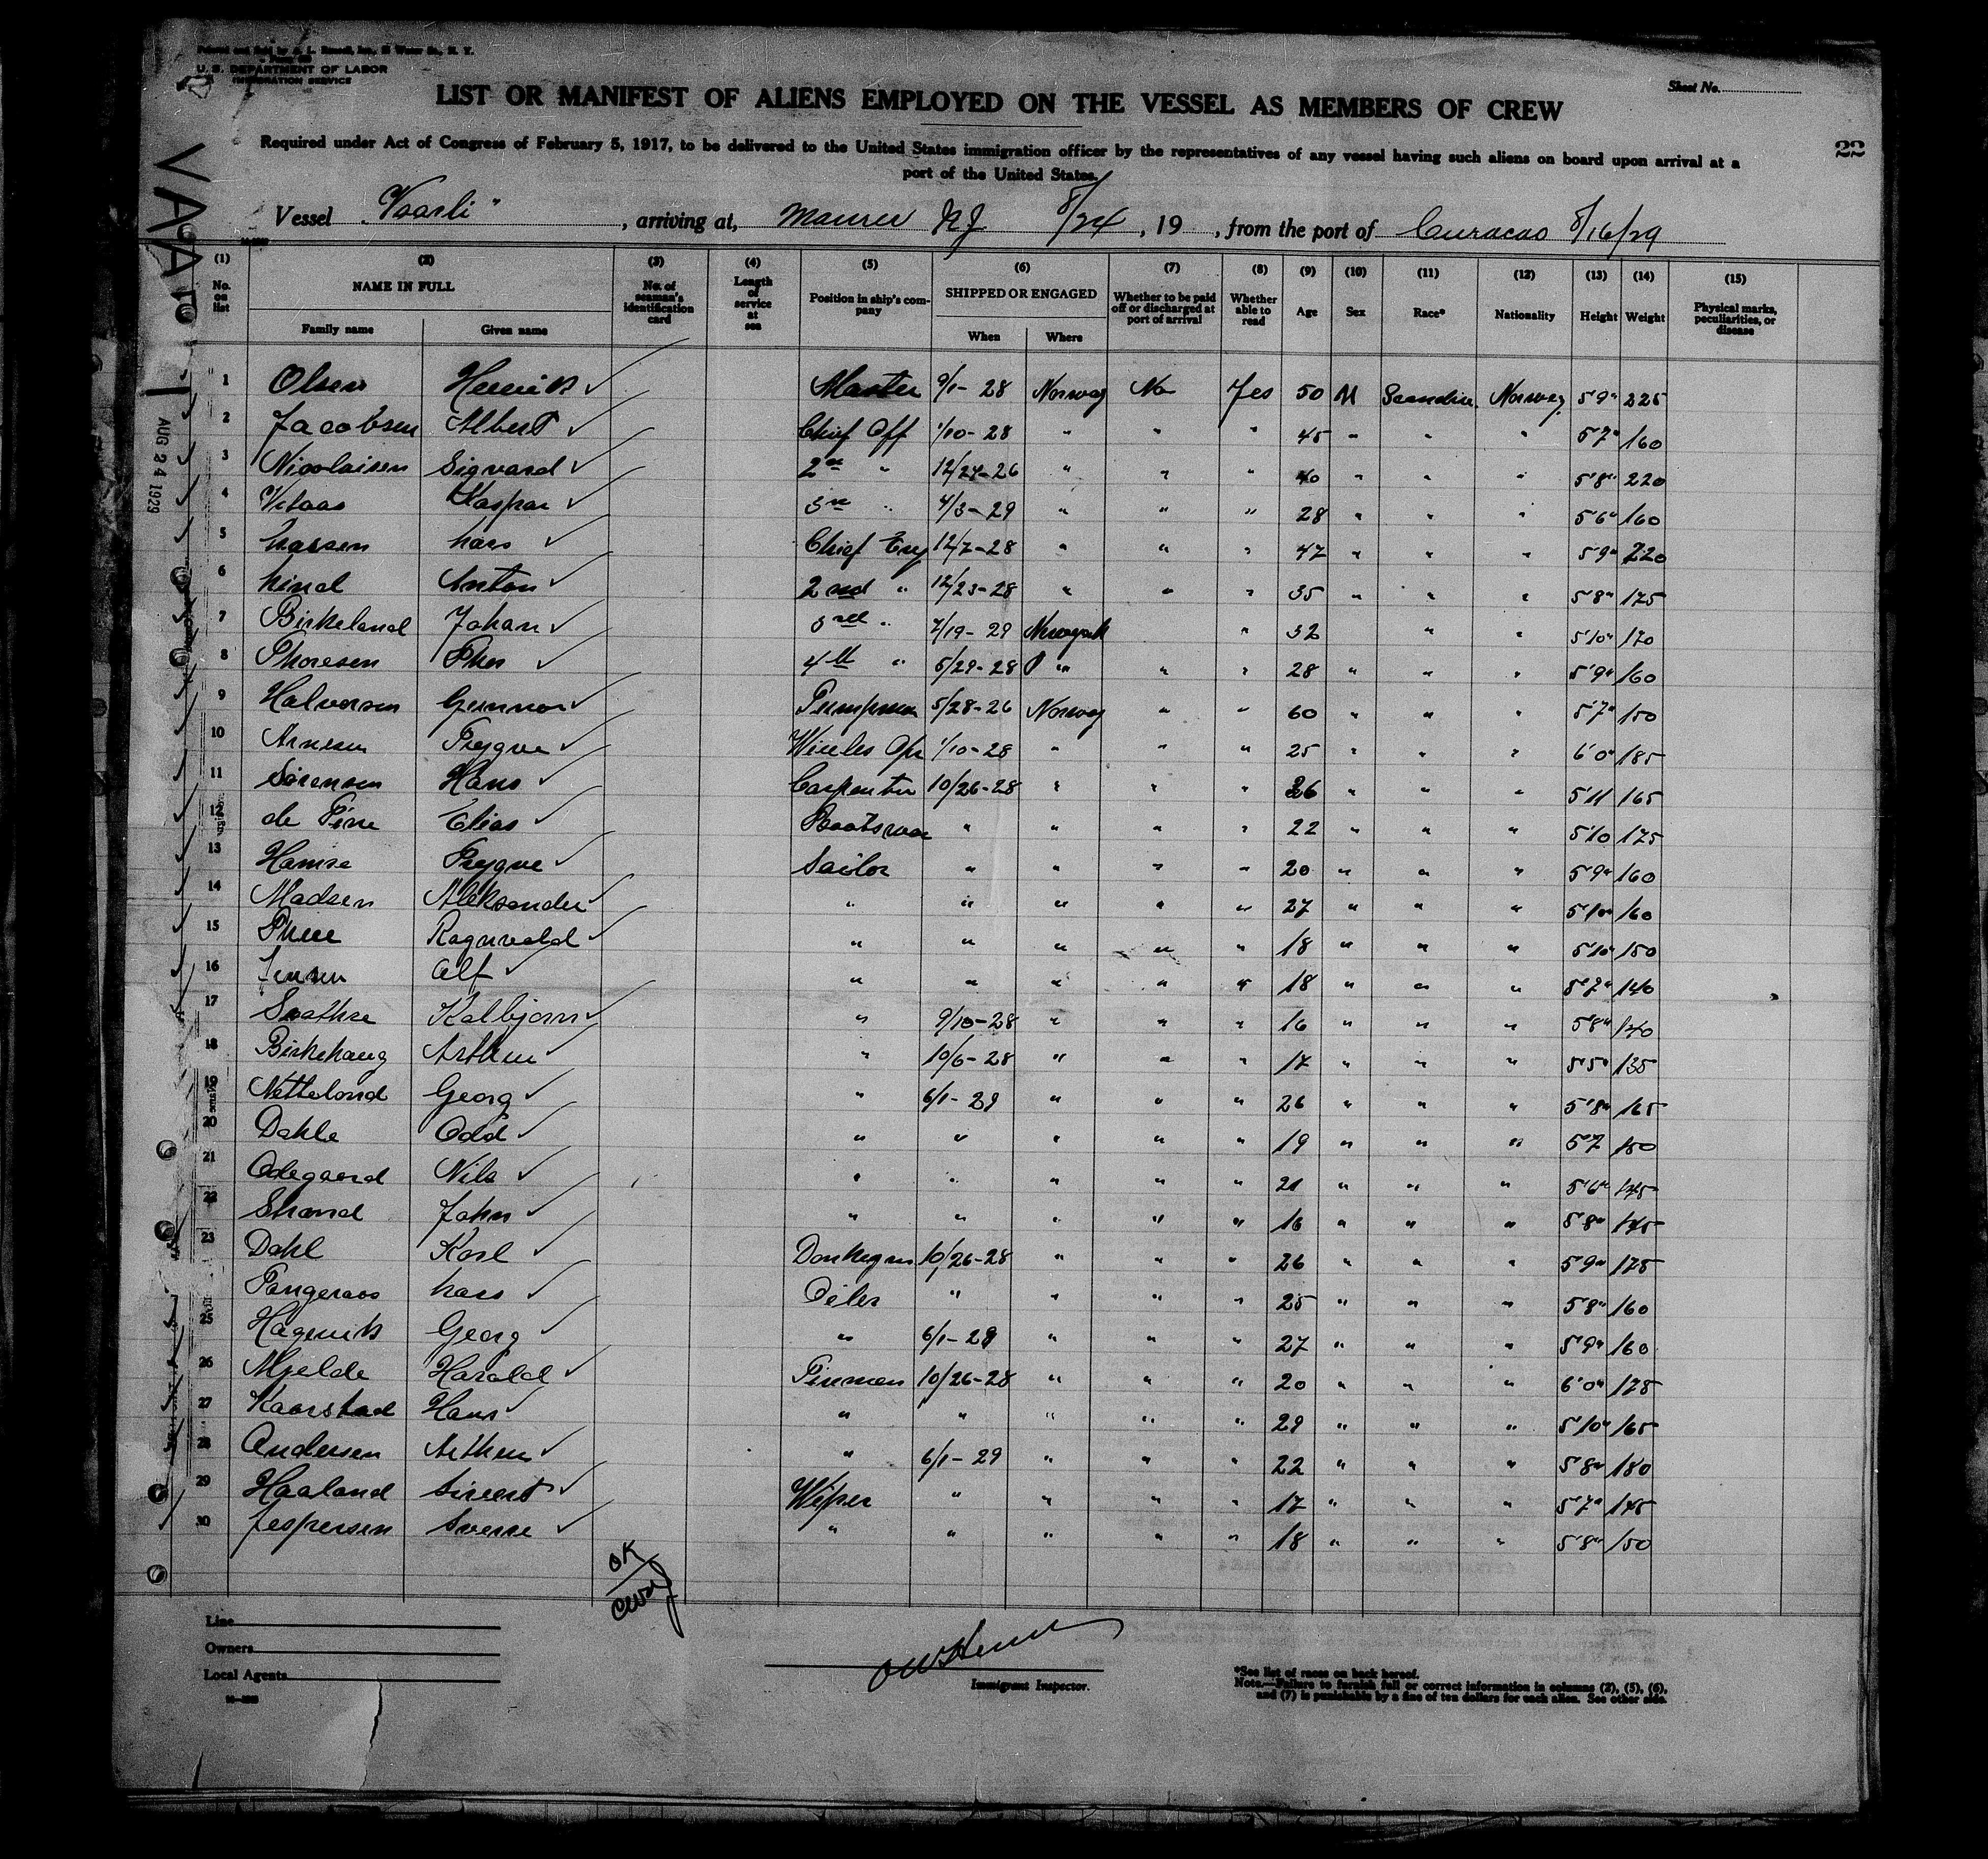 U. S. DEPARTMENT OF LABOR
IMMIGRATION SERVICE
Sheet No.
LIST OR MANIFEST OF ALIENS EMPLOYED ON THE VESSEL AS MEMBERS OF CREW
Required under Act of Congress of February 5, 1917, to be delivered to the United States immigration officer by the representatives of any vessel having such aliens on board upon arrival at a
port of the United States.
22
Vessel "Vaarli", arriving at, Maurer NJ 8/24, 19 , from the port of Curacao 8/16/29
AUG 24 1929
(1) (2) (3) (4) (5) (6) (7) (8) (9) (10) (11) (12) (13) (14) (15)
No. on list NAME IN FULL Family name Given name No. of seaman's identification card Length of service at sea Position in ship's company SHIPPED OR ENGAGED When Where Whether to be paid off or discharged at port of arrival Whether able to read Age Sex Race* Nationality Height Weight Physical marks, peculiarities, or disease
1 Olsen Henrik ✓ Master 9/1-28 Norway No Yes 50 M Scandin. Norway 5'9" 225
2 Jacobsen Albert ✓ Chief Off 1/10-28 " " " 45 " " " 5'7" 160
3 Nicolaisen Sigvard ✓ 2nd " 12/27-26 " " " 40 " " " 5'8" 220
4 Kaspar ✓ 3rd " 4/3-29 " " " 28 " " " 5'6" 160
5 Larsen Lars ✓ Chief Eng 12/7-28 " " " 47 " " " 5'9" 220
6 Lind Anton ✓ 2nd " 12/23-28 " " " 35 " " " 5'8" 175
7 Birkeland Johan ✓ 3rd " 7/19-29 Newyork " 32 " " 5'10" 170
8 Thoresen Thor ✓ 4th " 5/29-28 " " " 28 " " " 5'9" 160
9 Halvorsen Gunnar ✓ Pumpman 5/28-26 Norway " " 60 " " " 5'7" 150
10 Arnesen Trygve ✓ Wireles Opr 1/10-28 " " " 25 " " " 6'0" 185
11 Sørensen Hans ✓ Carpenter 10/26-28 " " " 26 " " " 5'11 165
12 de Fine Elias ✓ Bootsman " " " " 22 " " " 5'10 175
13 Hamre Trygve ✓ Sailor " " " " 20 " " " 5'9" 160
14 Madsen Aleksander ✓ " " " " " 27 " " " 5'10" 160
15 Ragnvald ✓ " " " " " 18 " " " 5'10" 150
16 Jensen Alf ✓ " " " " " 18 " " " 5'7" 140
17 Kolbjorn ✓ " 9/10-28 " " " 16 " " " 5'8" 140
18 Birkhaug Arthur ✓ " 10/6-28 " " " 17 " " " 5'5" 135
19 Netteland Georg ✓ " 6/1-29 " " " 26 " " " 5'8" 165
20 Dahle Odd ✓ " " " " " 19 " " " 5'7 150
21 Odegaard Nils ✓ " " " " " 21 " " " 5'6" 145
22 Strand John ✓ " " " " " 16 " " " 5'8" 145
23 Dahl Karl ✓ Donkeyman 10/26-28 " " " 26 " " " 5'9" 175
Tangeraas Lars ✓ Oiler " " " " 25 " " " 5'8" 160
25 Hagevik Georg ✓ " 6/1-29 " " " 27 " " " 5'9" 160
26 Mjelde Harald ✓ Firemen 10/26-28 " " " 20 " " " 6'0" 175
27 Kaarstad Hans ✓ " " " " " 29 " " " 5'10" 165
28 Andersen Arthur ✓ " 6/1-29 " " " 22 " " " 5'8" 180
29 Haaland Sivert ✓ Wiper " " " " 17 " " " 5'7" 145
30 Jespersen Sverre ✓ " " " " " 18 " " " 5'8" 150
OK
Line
Owners
Local Agents
Immigrant Inspector.
*See list of races on back hereof.
Note.—Failure to furnish full or correct information in columns (2), (5), (6),
and (7) is punishable by a fine of ten dollars for each alien. See other side.